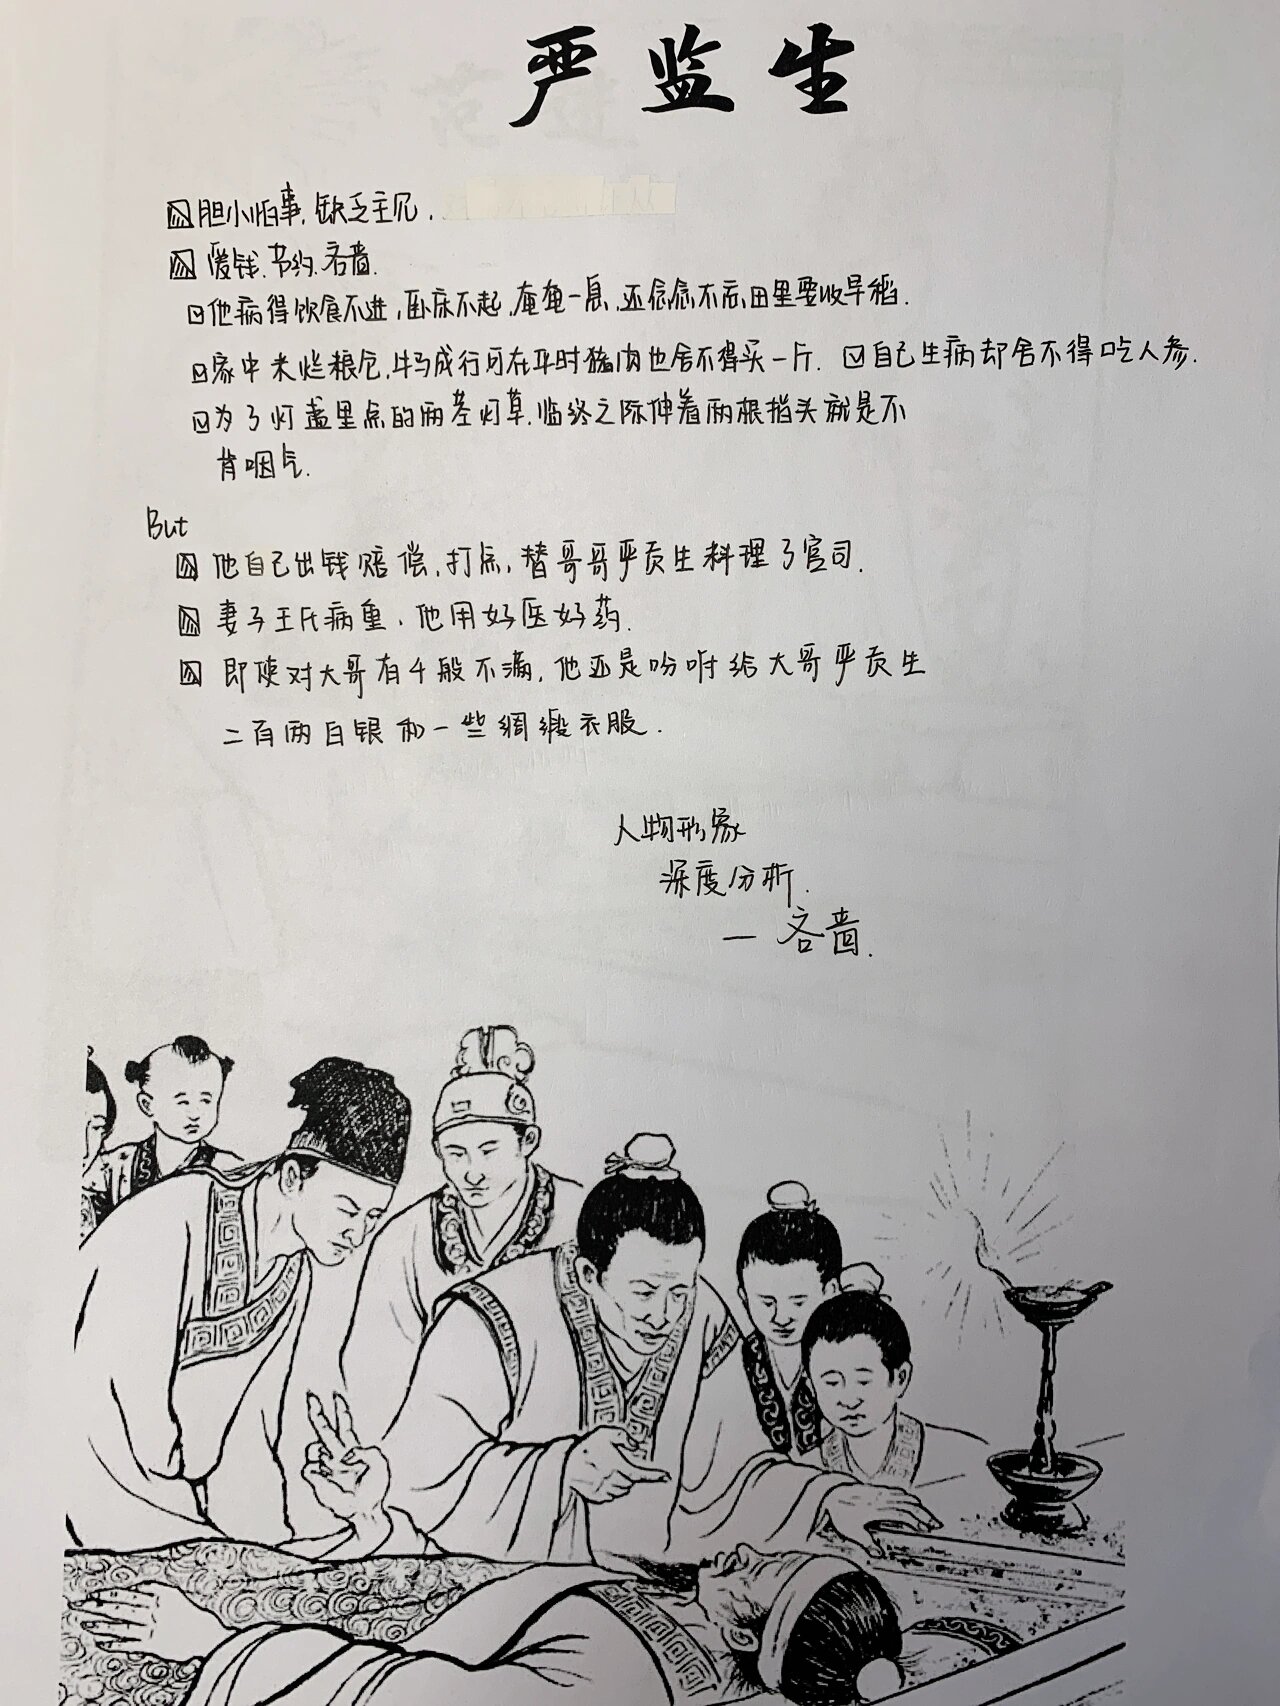 严监生
胆小怕事,缺乏主见.
爱钱.节约.吝啬.
他病得饮食不进,卧床不起,奄奄一息,还念念不忘田里要收早稻.
家中米烂粮仓,牛马成行可在平时猪肉也舍不得买一斤. 自己生病却舍不得吃人参.
为了灯盏里点的两茎灯草.临终之际伸着两根指头就是不
肯咽气.
But
他自己出钱赔偿,打点,替哥哥严贡生料理了官司.
妻子王氏病重,他用好医好药.
即使对大哥有千般不满,他还是吩咐给大哥严贡生
二百两白银和一些绸缎衣服.
人物形象
深度分析.
— 吝啬.